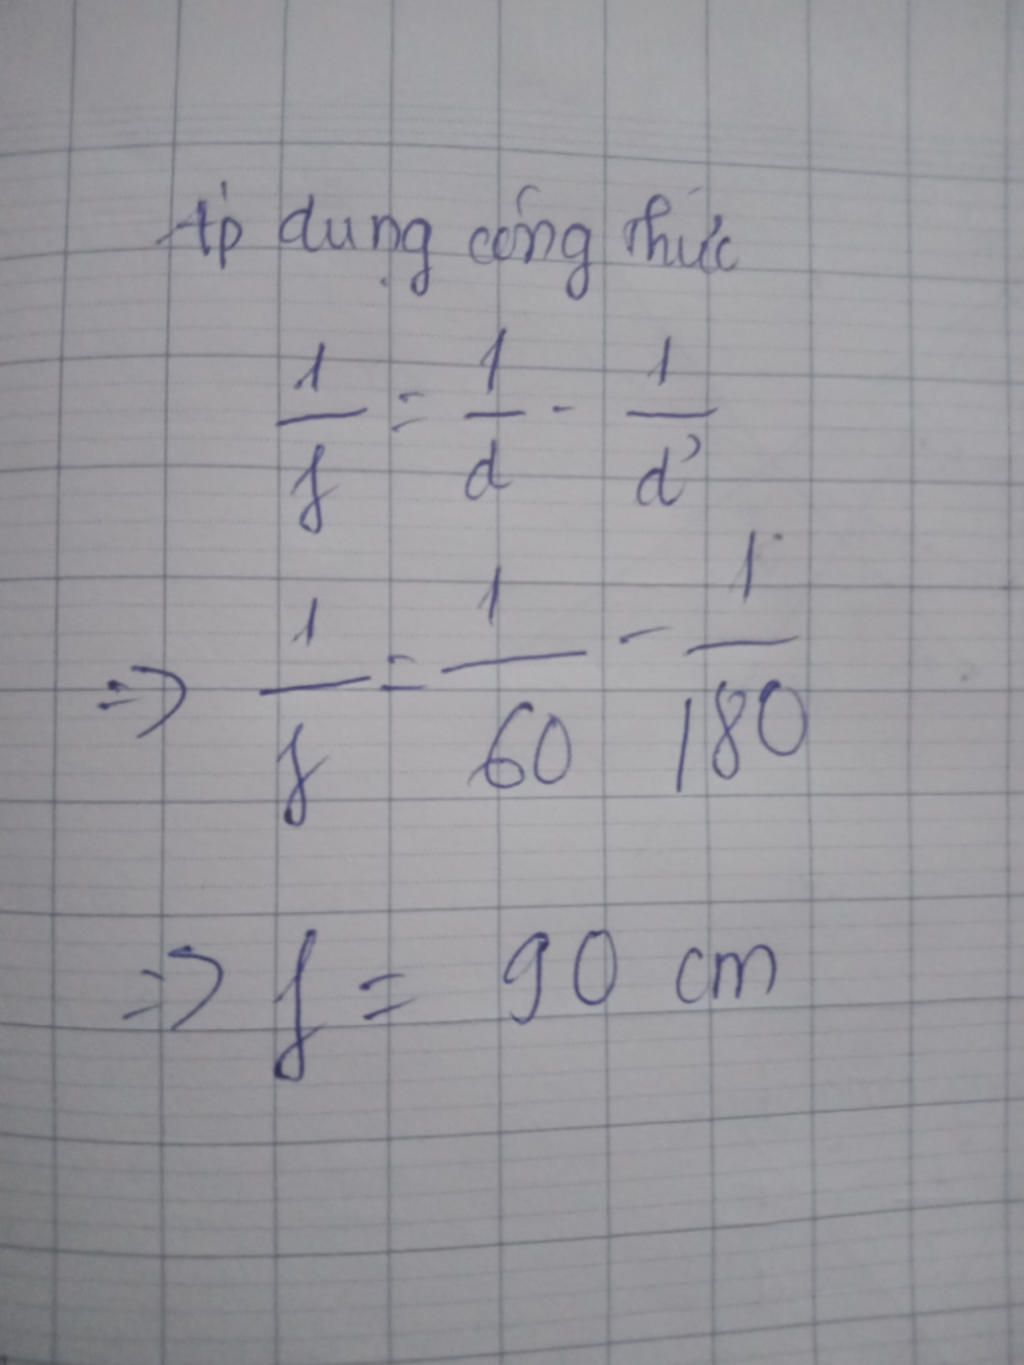 Áp dụng công thức
1/f = 1/d - 1/d'
=> 1/f = 1/60 - 1/180
=> f = 90 cm